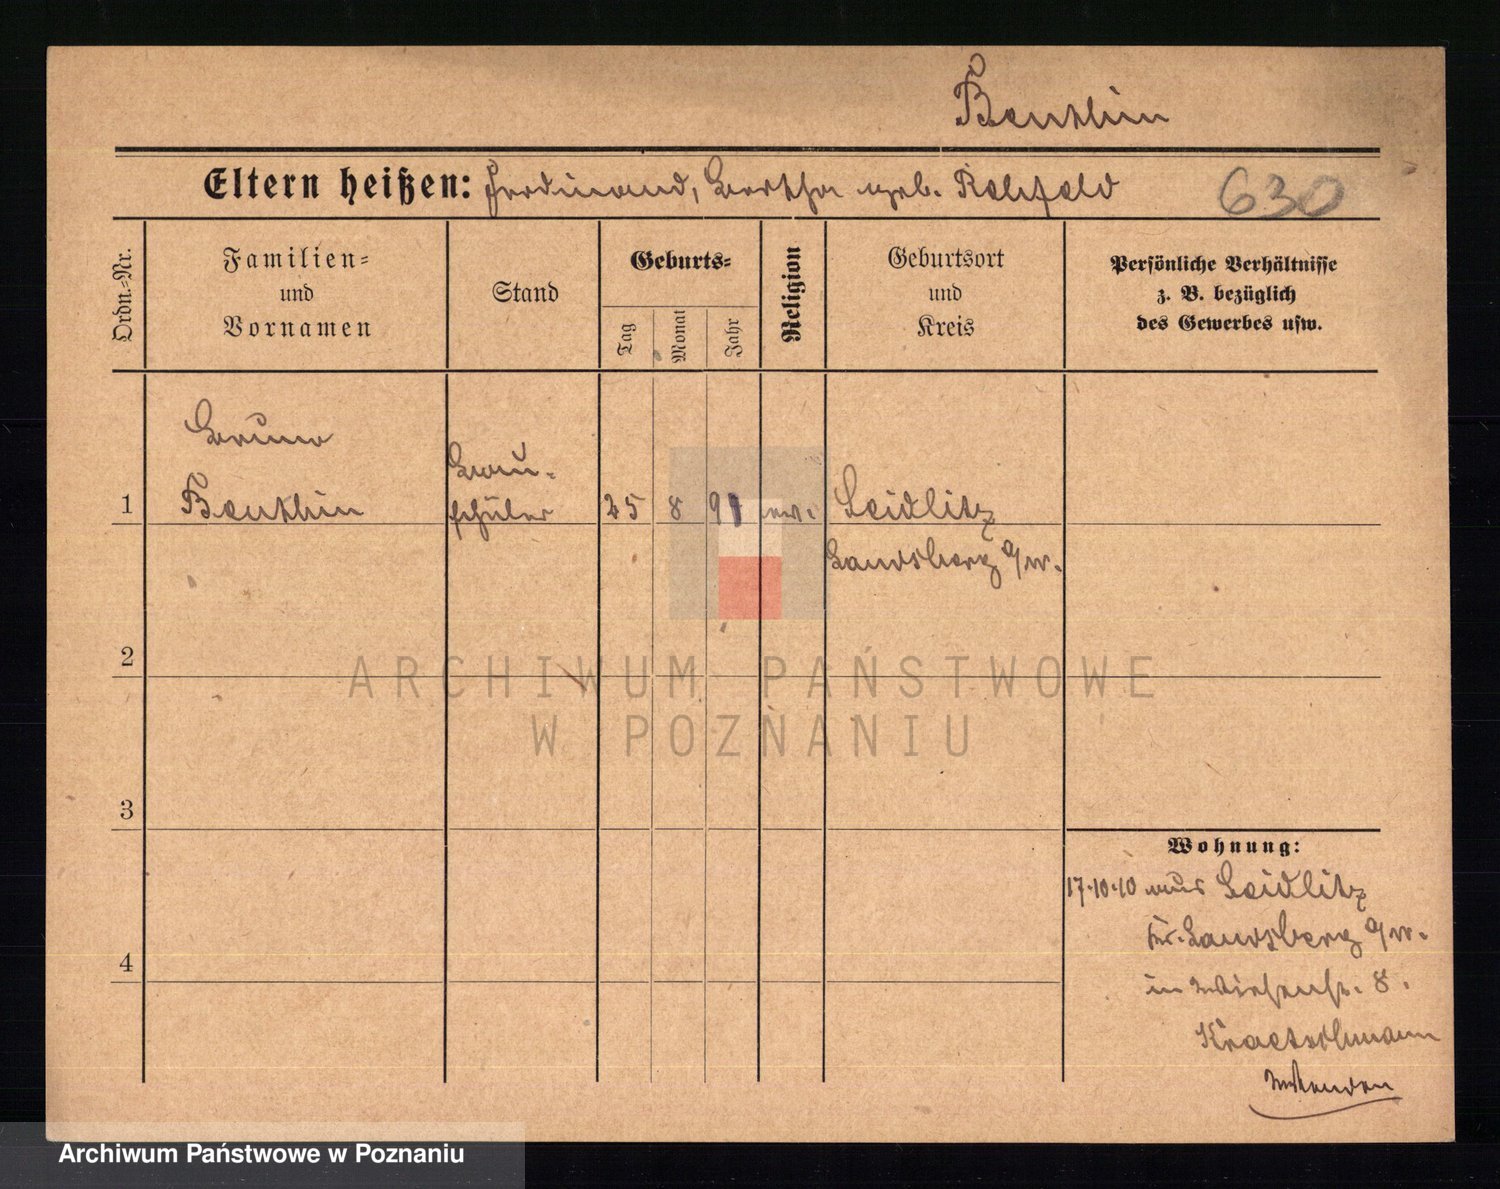 Benthin
Eltern heißen: Ferdinand, Bertha geb. Rehfeld
630
Ordn.-Nr.
Familien-
und
Vornamen
Stand
Geburts-
Tag
Monat
Jahr
Religion
Geburtsort
und
Kreis
Persönliche Verhältnisse
z. B. bezüglich
des Gewerbes usw.
Bruno
Benthin
1
Bau-
schüler
25 8 91 ev.
Seidlitz
Landsberg a/W.
2
ARCHIWUM PAŃSTWOWE
W POZNANIU
3
Wohnung:
17.10.10 aus Seidlitz
Kr. Landsberg a/W.
4
in Wiesenstr. 8.
Archiwum Państwowe w Poznaniu